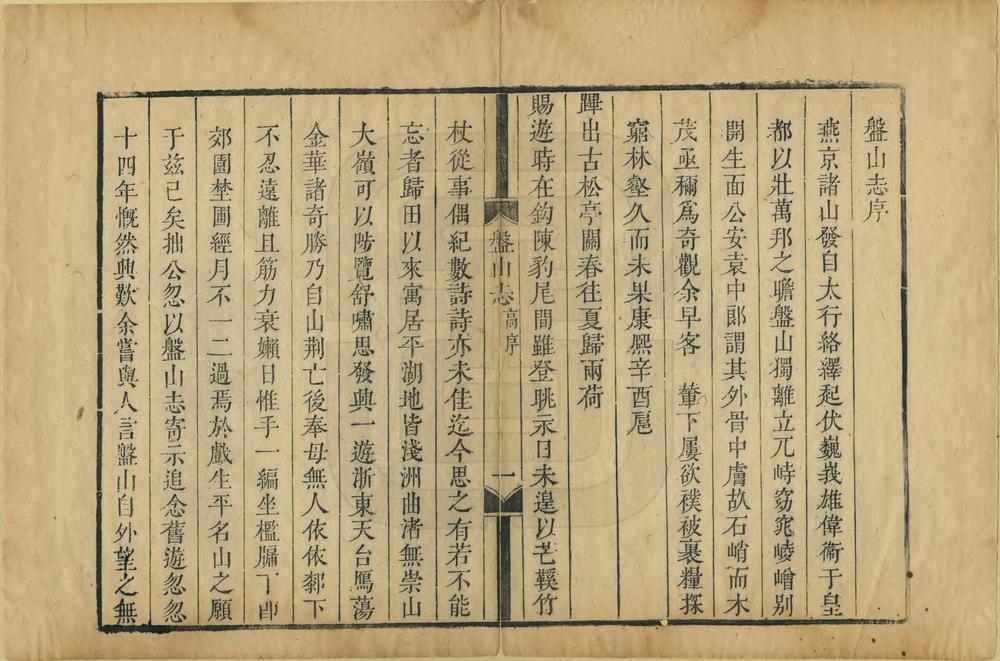 盤山志序
燕京諸山發自太行絡繹起伏巍峩雄偉衞于皇
都以壯萬邦之瞻盤山獨離立兀峙窈窕崚嶒別
開生面公安袁中郎謂其外骨中膚故石峭而木
茂亟稱爲奇觀余早客 輦下屢欲襆被裹糧探
窮林壑久而未果康熈辛酉扈
蹕出古松亭關春徃夏歸兩荷
賜遊時在鈎陳豹尾間雖登眺示日未遑以芒鞵竹
盤山志 高序 一
杖從事偶紀數詩詩亦未佳迄今思之有若不能
忘者歸田以來寓居平湖地皆淺洲曲渚無崇山
大嶺可以陟覽舒嘯思發興一遊浙東天台鴈蕩
金華諸奇勝乃自山荆亡後奉母無人依依郄下
不忍遠離且筋力衰嬾日惟手一編坐檻牖下卽
郊園埜圃經月不一二過焉於戲生平名山之願
于玆已矣拙公忽以盤山志寄示追念舊遊忽忽
十四年慨然興歎余嘗與人言盤山自外望之無